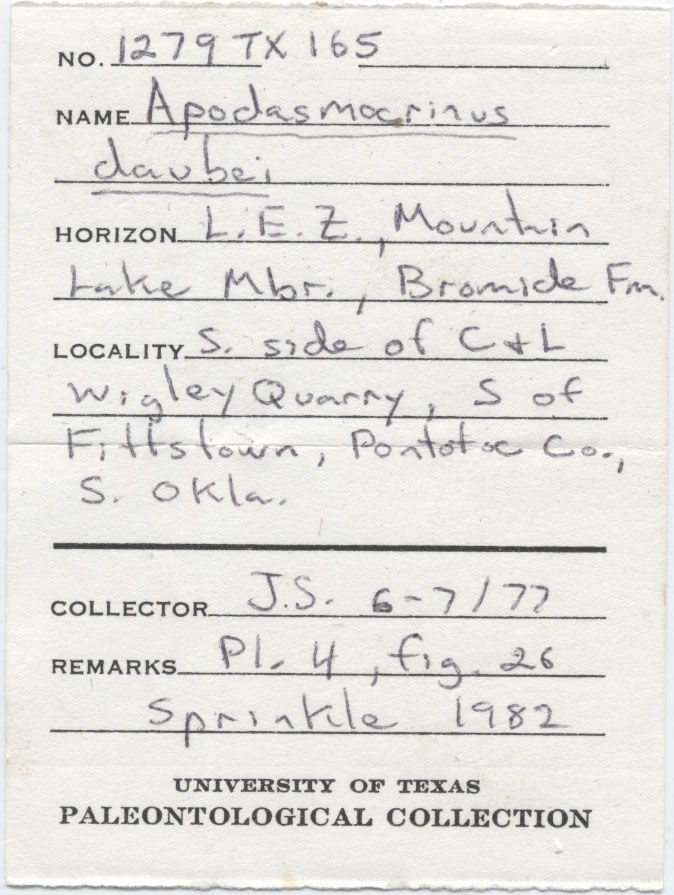 NO. 1279 TX 165
NAME Apodasmocrinus
daubei
HORIZON L.E.Z., Mountain
Lake Mbr., Bromide Fm.
LOCALITY S. side of C+L
Wigley Quarry, S of
Fittstown, Pontotoc Co.,
S. Okla.
COLLECTOR J.S. 6-7/77
REMARKS Pl. 4, fig. 26
Sprinkle 1982
UNIVERSITY OF TEXAS
PALEONTOLOGICAL COLLECTION